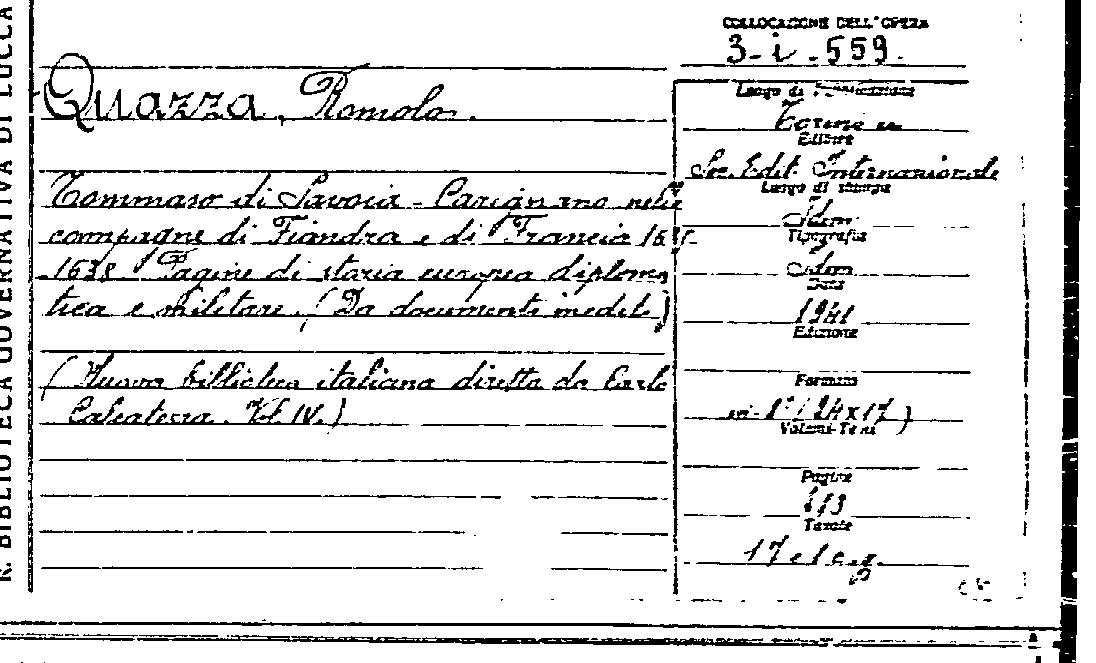 R. BIBLIOTECA GOVERNATIVA DI LUCCA
COLLOCAZIONE DELL'OPERA
3-i-559.
Quazza, Romolo.
Tommaso di Savoia-Carignano nelle
campagne di Fiandra e di Francia 1635-
-1638 Pagine di storia europea diploma
tica e militare. (Da documenti inediti)
(Nuova biblioteca italiana diretta da Carlo
Calcaterra. Vol. IV.)
Luogo di Pubblicazione
Torino
Editore
Soc. Edit. Internazionale
Luogo di stampa
Idem
Tipografia
Idem
Data
1941
Edizione
Formato
in-8° (24x17)
Volumi-Tomi
Pagine
Tavole
17 e 1 c.g.